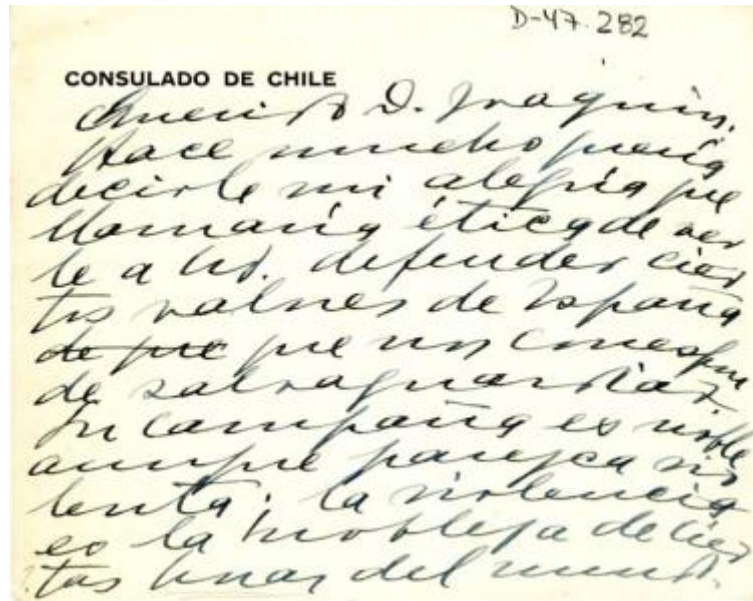 D-47.282
CONSULADO DE CHILE
Querido D. Joaquín:
Hace mucho quería
decirle mi alegría que
llamaría ética de ver
le a Ud. defender cier
tos valores de España
de que que nos corespon
de salvaguardiar
Su campaña es noble
aunque parezca vio
lenta; la violencia
es la nobleza de cier
tas horas del mundo.